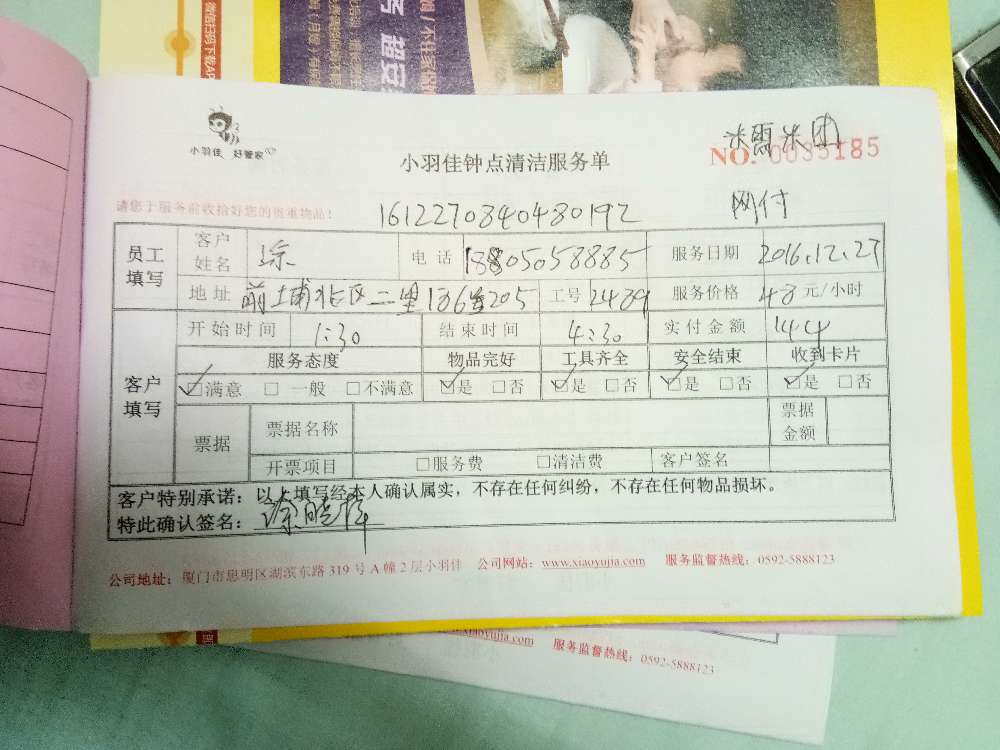 小羽佳 好管家
小羽佳钟点清洁服务单
NO. 0035185
请您于服务前收拾好您的贵重物品!
1612270840480192
网付
员工填写
客户姓名 涂 电话 18805058885 服务日期 2016.12.27
地址 前埔北区二里186号205 工号 2489 服务价格 48 元/小时
客户填写
开始时间 1:30 结束时间 4:30 实付金额 144
服务态度 物品完好 工具齐全 安全结束 收到卡片
☑满意 □一般 □不满意 ☑是 □否 ☑是 □否 ☑是 □否 ☑是 □否
票据 票据名称 票据金额
开票项目 □服务费 □清洁费 客户签名
客户特别承诺：以上填写经本人确认属实，不存在任何纠纷，不存在任何物品损坏。
特此确认签名：
公司地址：厦门市思明区湖滨东路 319 号 A 幢 2 层小羽佳 公司网站：www.xiaoyujia.com 服务监督热线：0592-5888123
www.xiaoyujia.com 服务监督热线：0592-5888123